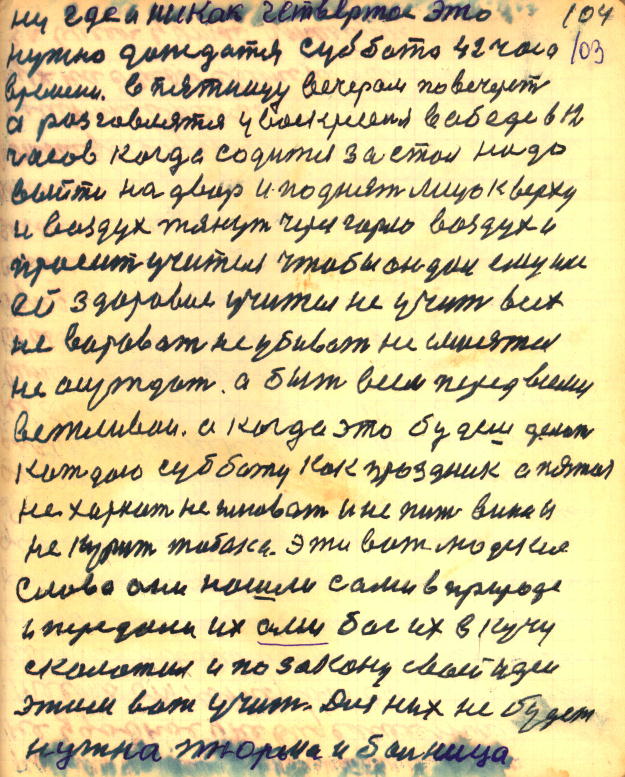 ну где и никак четвертое это 104
нужно дождатся суббота 42 часа 103
времени. в пятницу вечером повечерят
а разговлятся у воскресеня в обеде в 12
часов когда содится за стол надо
выйти на двор и поднят лицо к верху
и воздух тянут через горло воздух и
просит учителя чтобы он дал ему или
ей здоровие учител не учит всех
не вороват не убиват не смеятся
не осуждат. а быт всем перед всеми
вежливои. а когда это будеш делат
каждою субботу как праздник а пятая
не харкат не плюват и не пит вина и
не курит табака. Эти вот людские
слова они нашли сами в природе
и передали их они бог их в кучу
сколотил и по закону своей идеи
этим вот учит. Для них не будет
нужна тюрьма и болница